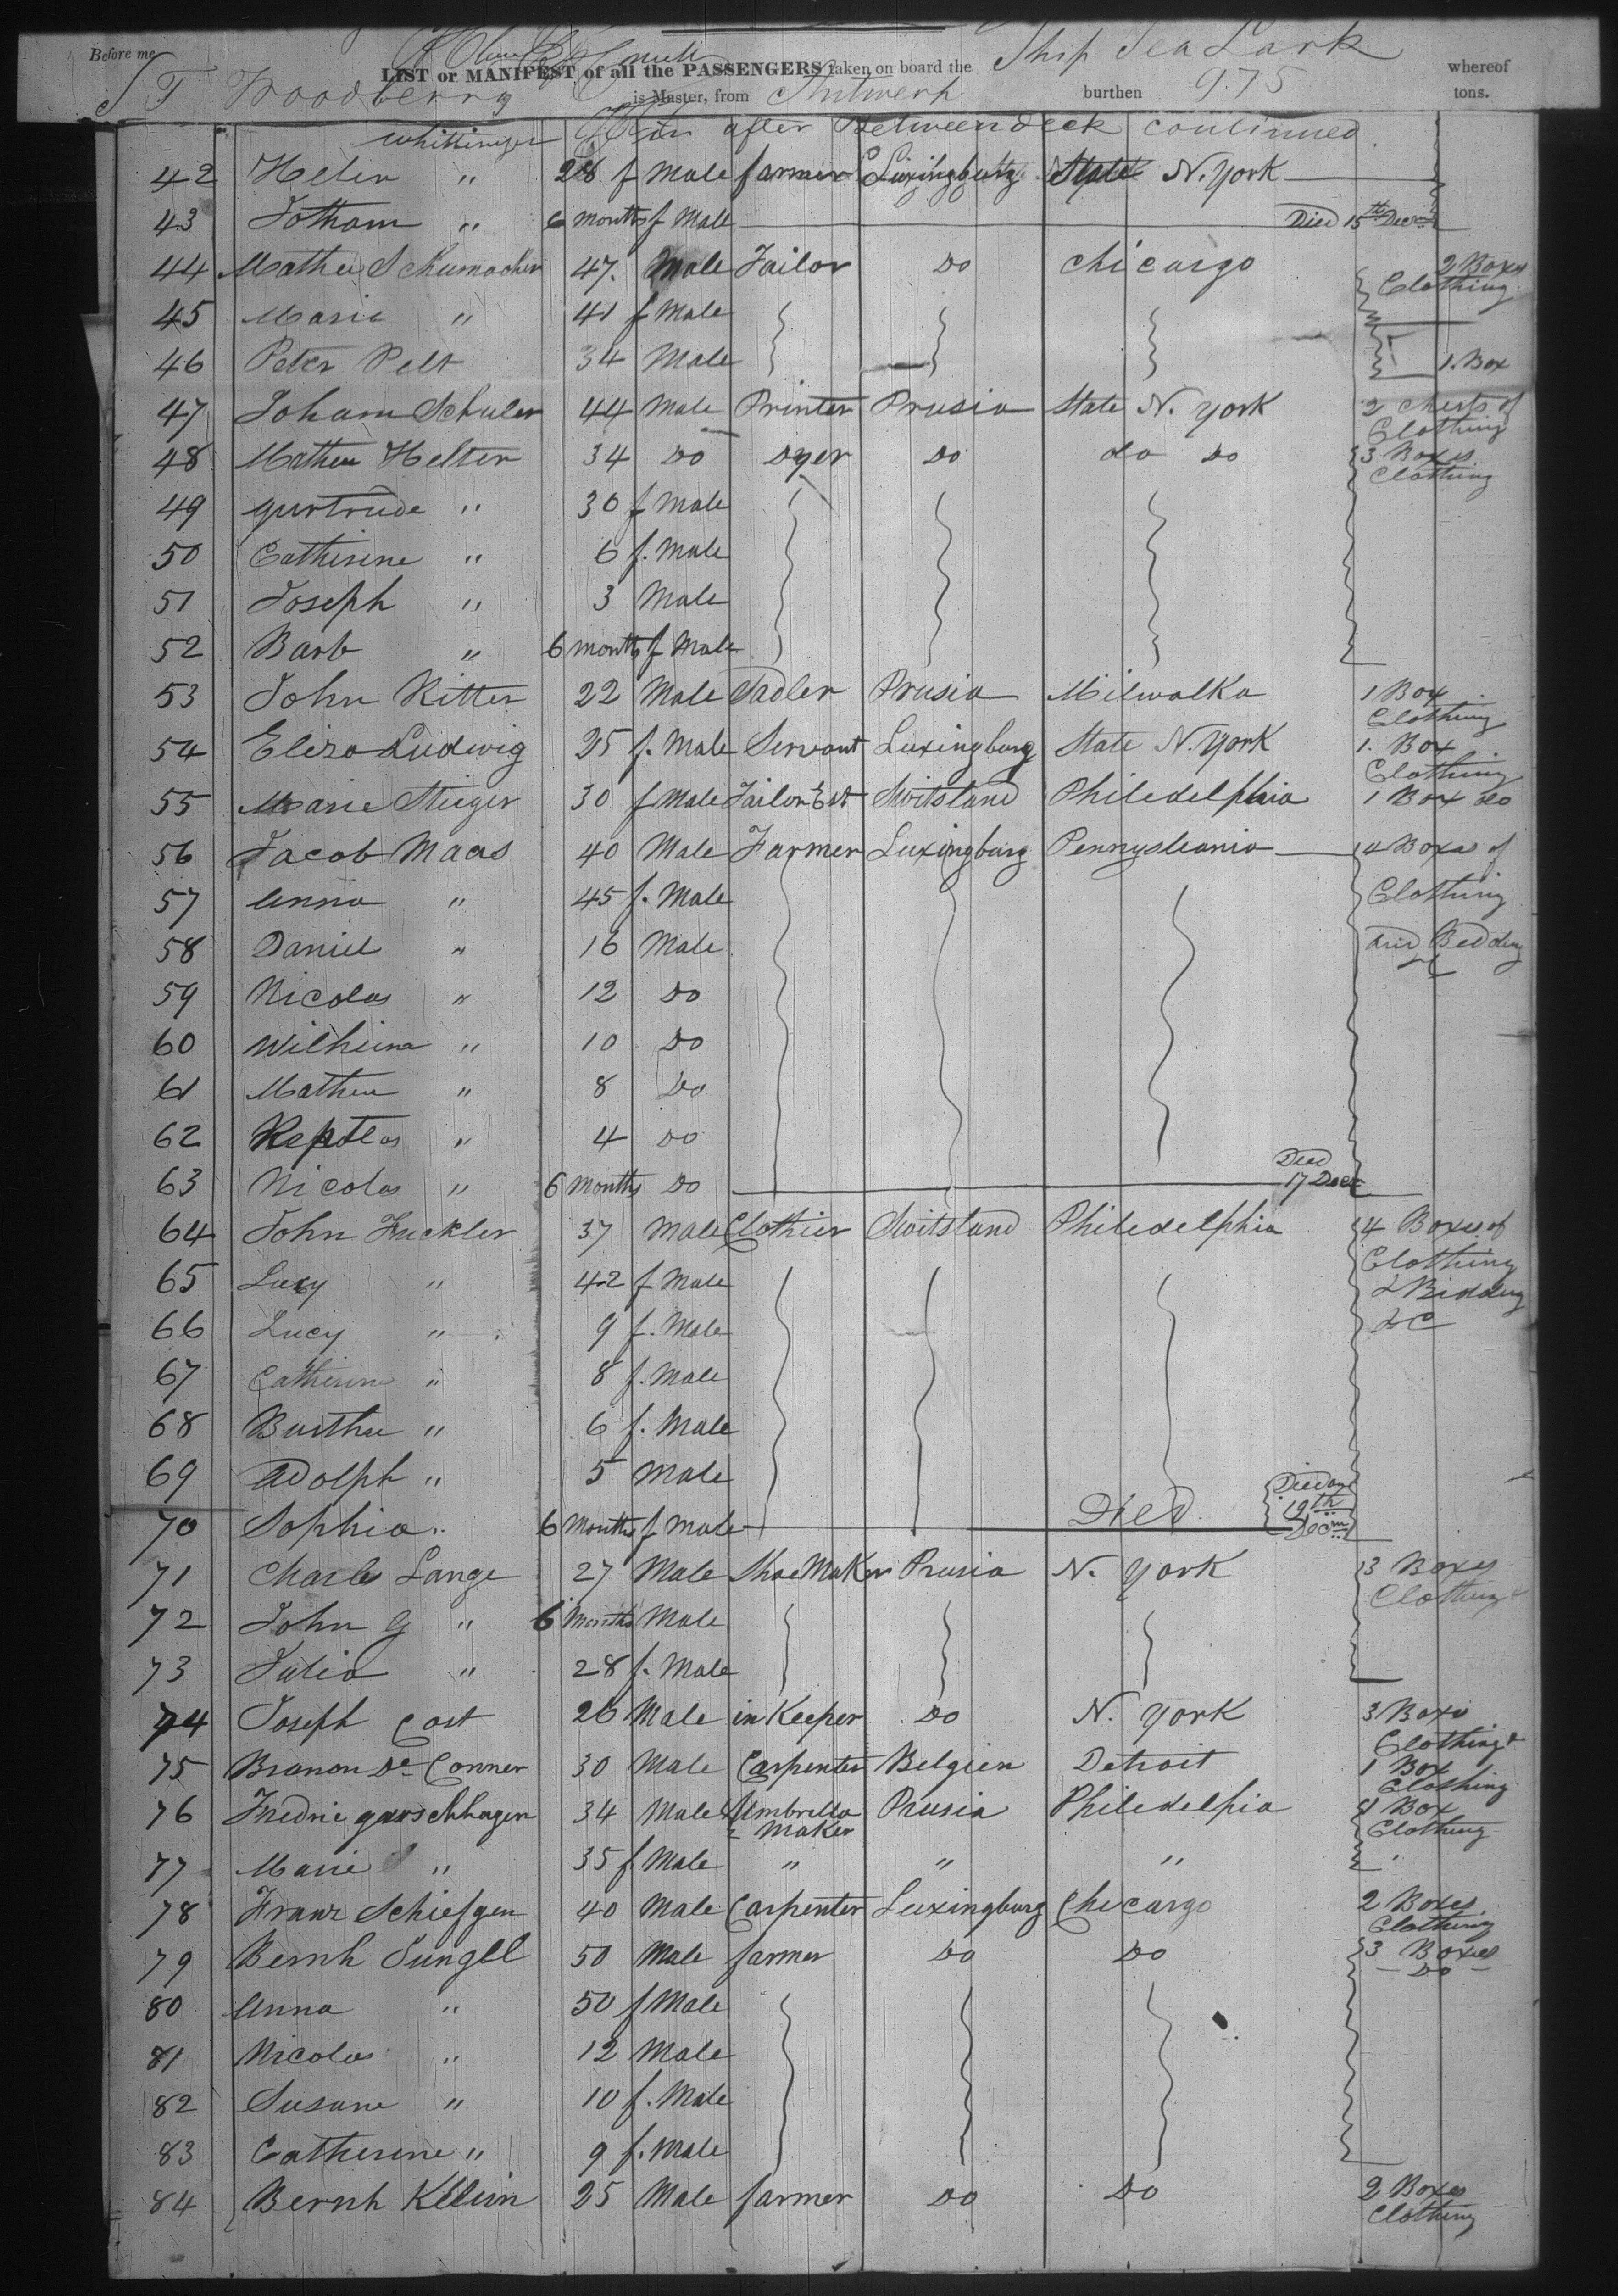 Before me
LIST or MANIFEST of all the PASSENGERS taken on board the Ship Sea Lark whereof
S T Woodberry is Master, from Antwerp burthen 975 tons.
after Betweendeck continued
42 Helen " 28 f Male farmer Luxingburg State N. York
43 Jotham " 6 months f Male Died 15th Decm
44 Mathew Schumacher 47. Male Tailor Do Chicargo 2 Boxes Clothing
45 Marie " 41 f Male
46 Peter Pelt 34 Male 1. Box
47 Joham Schuler 44 Male Printer Prusia State N. York 2 Chests of Clothing
48 Mathew Helter 34 Do Dyer Do do Do 3 Boxes Clothing
49 gurtrude " 30 f Male
50 Catherine " 6 f. Male
51 Joseph " 3 Male
52 Barb " 6 months f Male
53 John Ritter 22 Male Sadler Prusia Milwalka 1 Box Clothing
54 Eliza Ludwig 25 f. Male Servant Luxingburg State N. York 1. Box Clothing
55 Marie Stieger 30 f Male Tailor Est Switsland Philedelphia 1 Box do
56 Jacob Maas 40 Male Farmer Luxingburg Pennyslvania 4 Boxes of
57 Anna " 45 f. Male Clothing
58 Daniel " 16 Male and Bedding
59 Nicolas " 12 Do
60 Wilheima " 10 Do
61 Mathew " 8 Do
62 " 4 Do
63 Nicolas " 6 Months Do Died 17 Dec
64 John Zuckler 37 Male Clothier Switsland Philedelphia 4 Boxes of Clothing
65 Lucy " 42 f Male & Bidding
66 Lucy " 9 f. Male &C
67 Catherine " 8 f. Male
68 Burtha " 6 f. Male
69 Adolph " 5 Male
70 Sophia " 6 Months f Male Died. Died on 19th Decm
71 Charles Lange 27 Male ShoeMaker Prusia N. York 3 Boxes Clothing
72 John G " 6 Months Male
73 Julia " 28 f. Male
74 Joseph Cost 26 Male in Keeper Do N. York 3 Boxes Clothing
75 Branon De Conner 30 Male Carpenter Belgien Detroit 1 Box Clothing
76 Fredric garschhagen 34 Male Umbrella Maker Prusia Philedelpia 4 Box Clothing
77 Marie " 35 f Male " " "
78 Franz Schiefgen 40 Male Carpenter Luxingburg Chicargo 2 Boxes. Clothing
79 Bernh Jungbl 50 Male farmer Do Do 3 Boxes Do
80 Anna " 50 f Male
81 Nicolas " 12 Male
82 Susane " 10 f. Male
83 Catherine " 9 f. Male
84 Bernh Kleim 25 Male farmer Do Do 2 Boxes Clothing